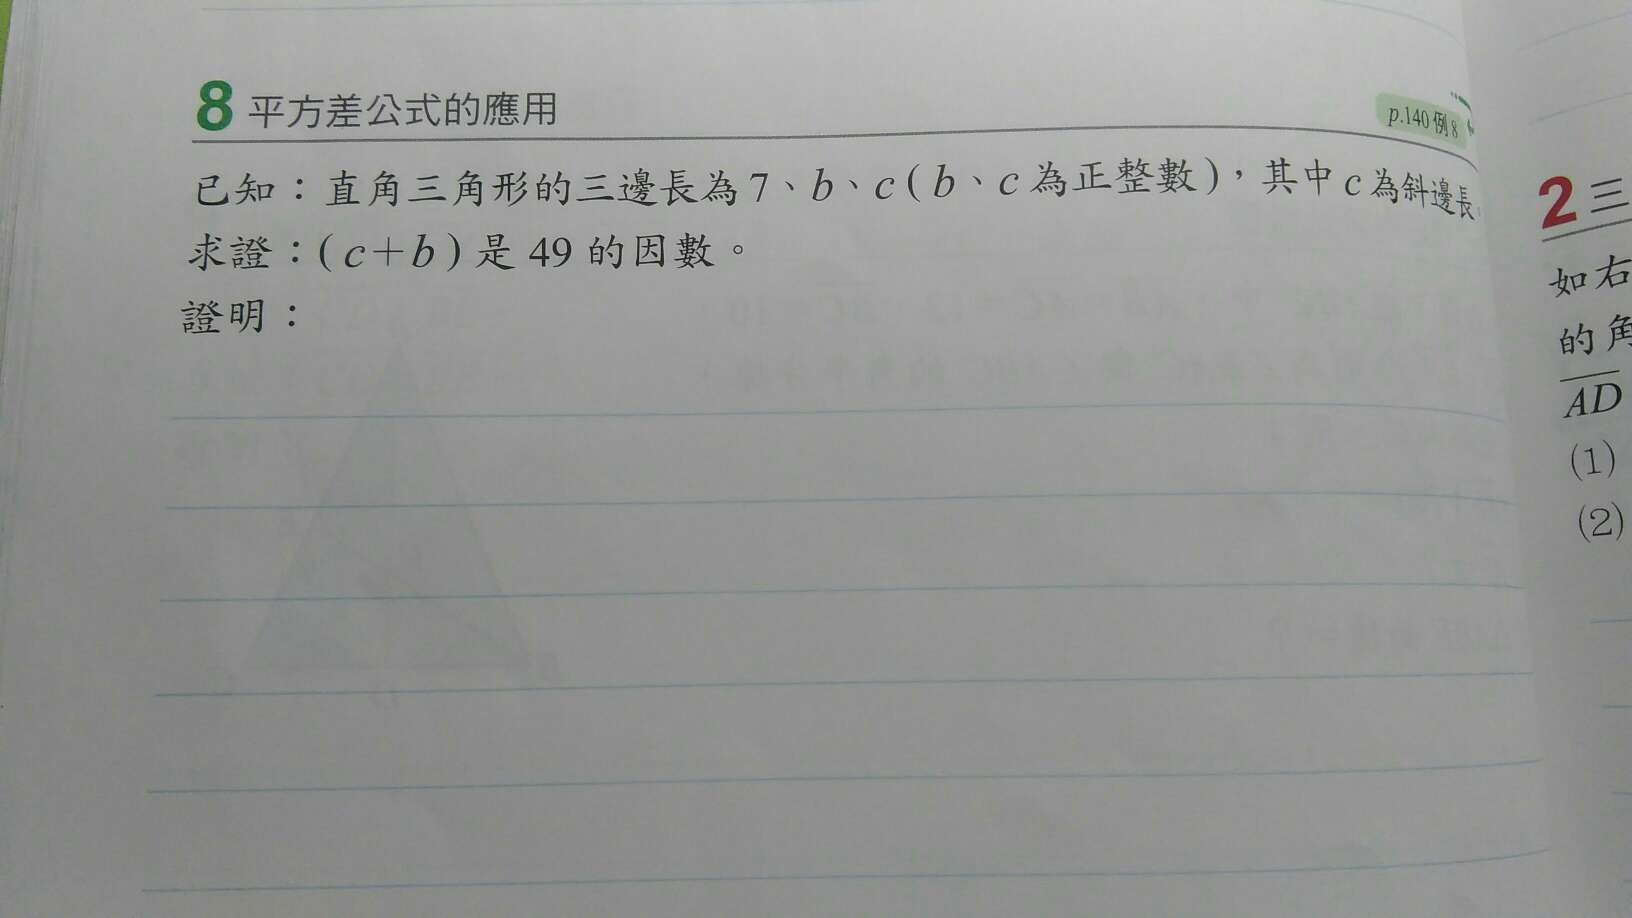 8 平方差公式的應用
p.140 例 8
已知：直角三角形的三邊長為 7、b、c ( b、c 為正整數 )，其中 c 為斜邊長。
求證：( c＋b ) 是 49 的因數。
證明：
2 三
如右
的角
AD
(1)
(2)